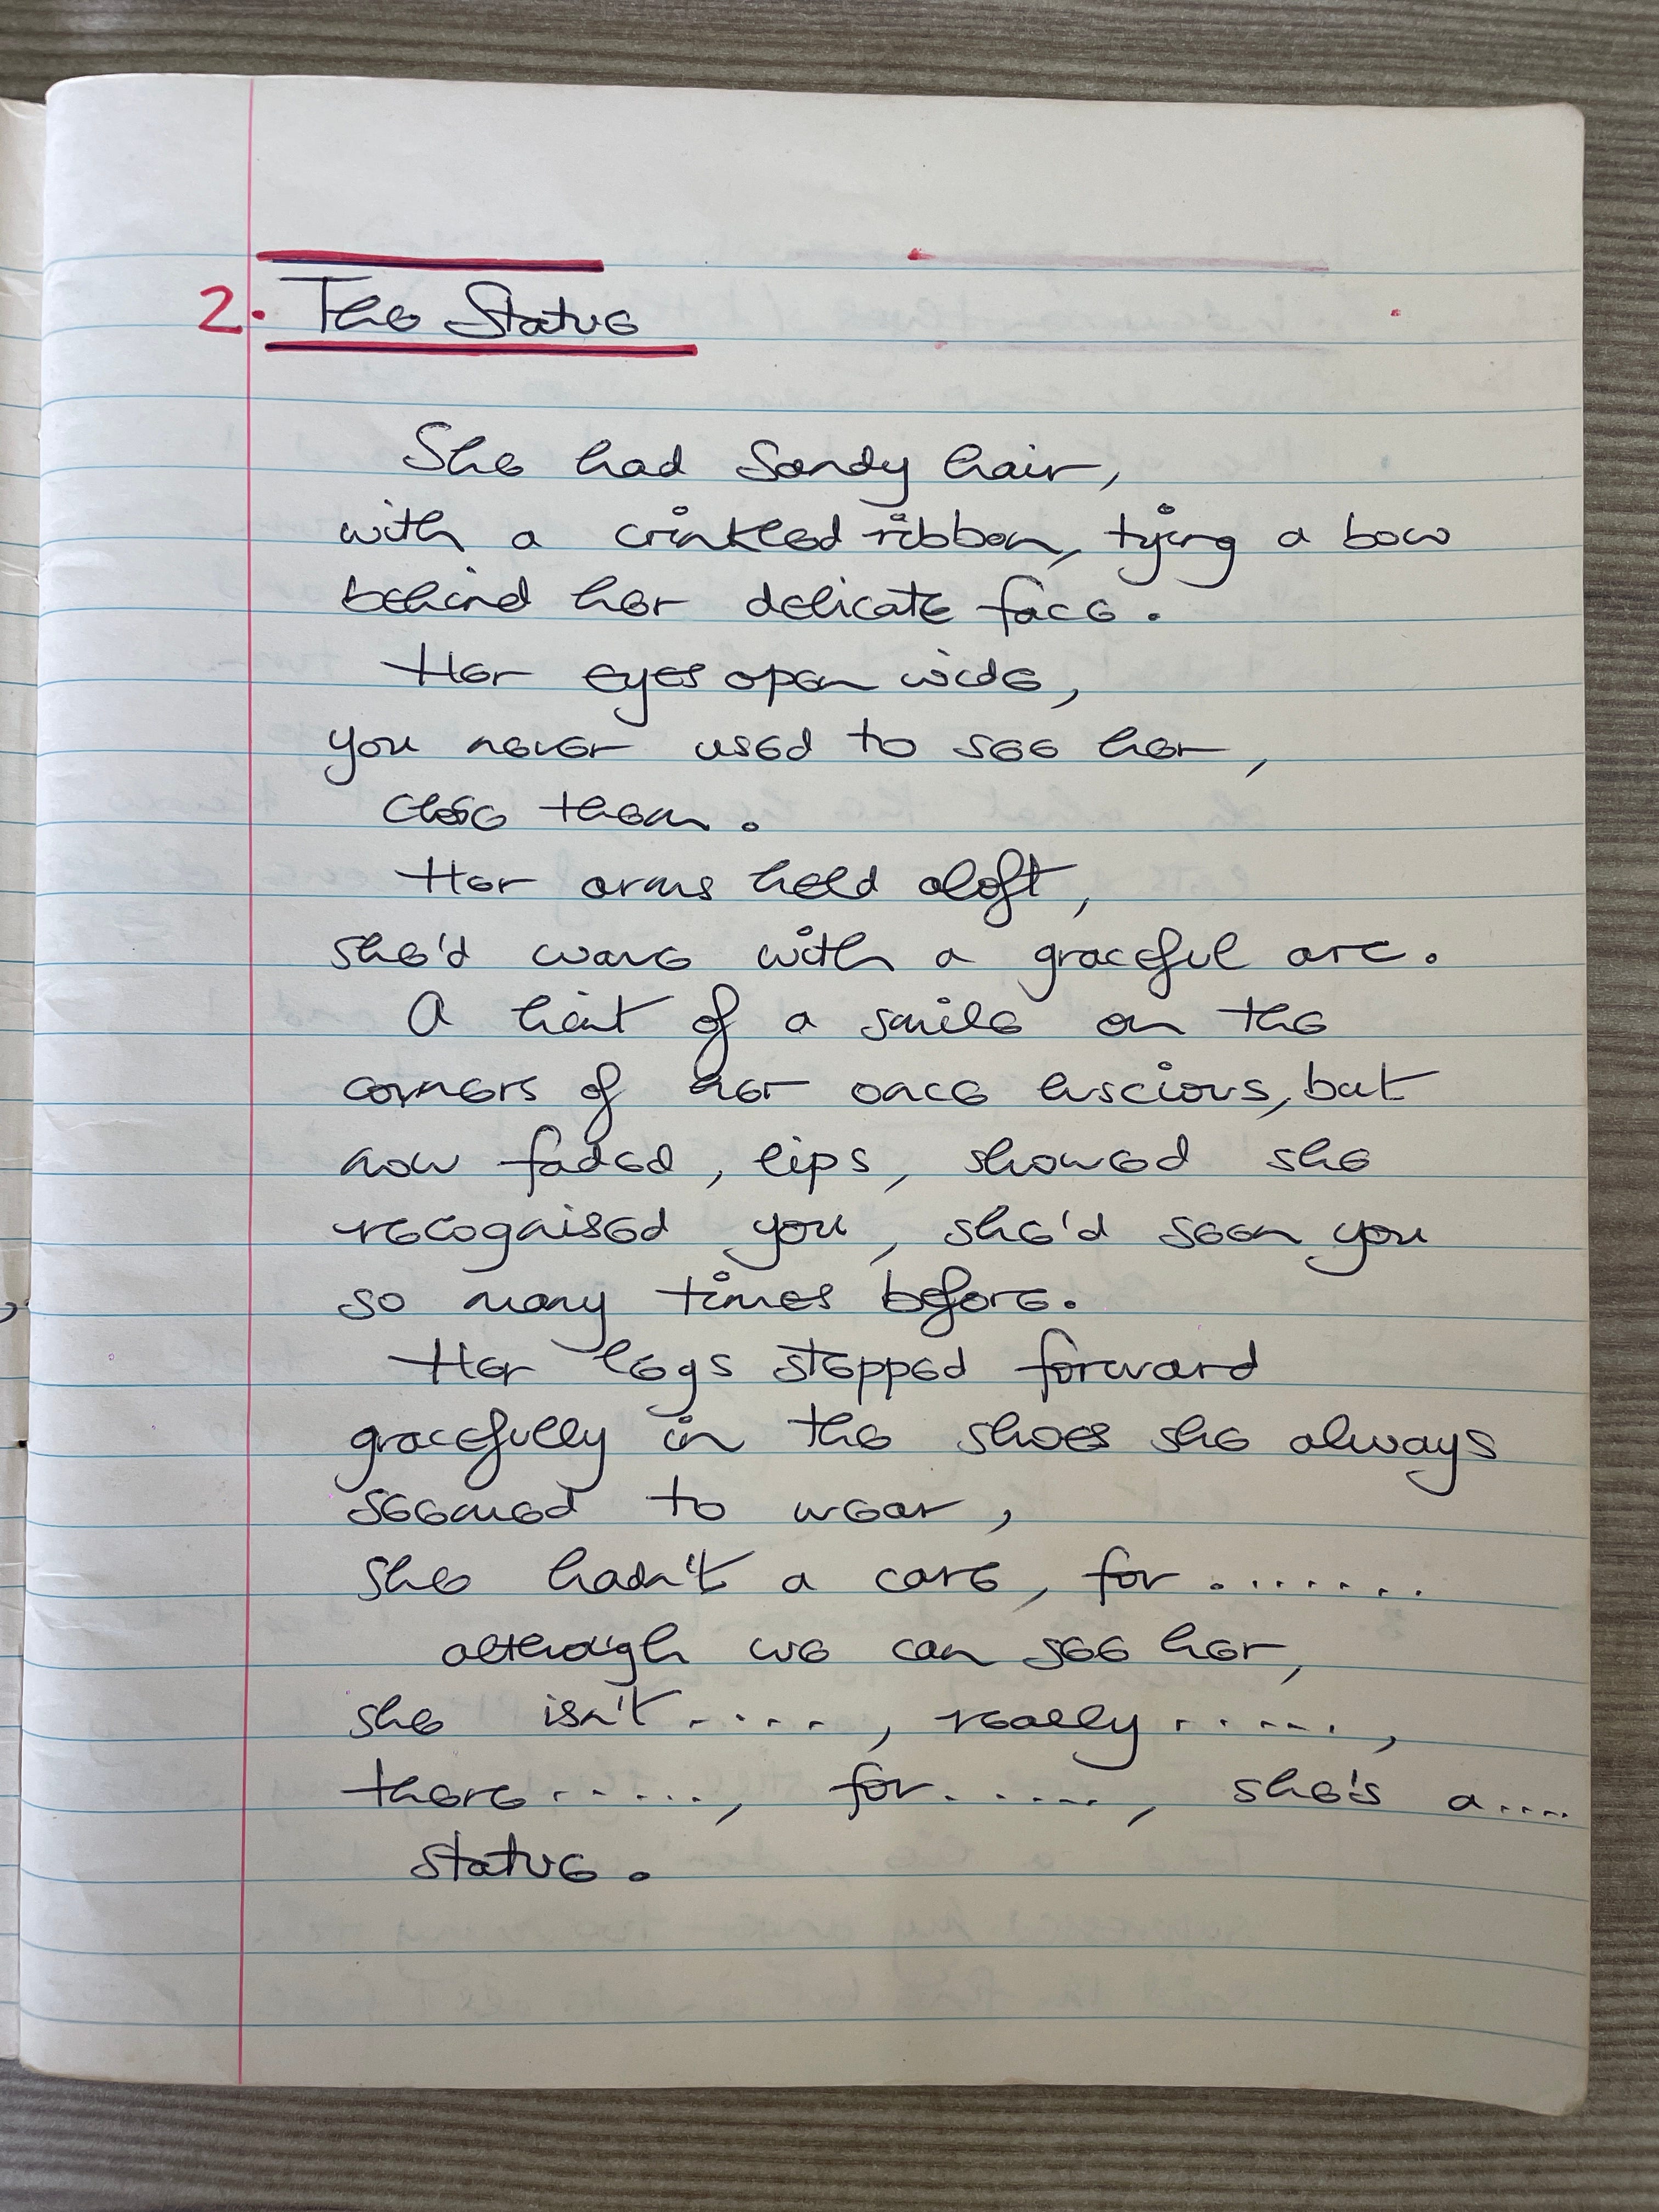 2. The Statue
She had Sandy hair,
with a crinkled ribbon, tying a bow
behind her delicate face.
Her eyes open wide,
you never used to see her,
close them.
Her arms held aloft,
she'd wave with a graceful arc.
A hint of a smile on the
corners of her once luscious, but
now faded, lips, showed she
recognised you, she'd seen you
so many times before.
Her legs stepped forward
gracefully in the shoes she always
seemed to wear,
she hadn't a care, for .......
although we can see her,
she isn't ...., really ......,
there ......, for ......, she's a ....
statue.